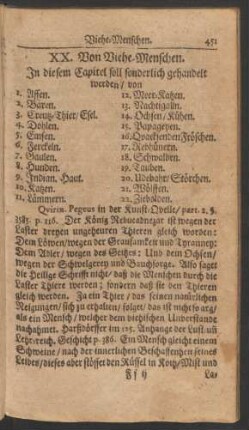 Viehe-Menschen. 451
XX. Von Viehe-Menschen.
In diesem Capitel soll sonderlich gehandelt
werden/ von
1. Affen.
2. Bären.
3. Creutz-Thier/ Esel.
4. Dohlen.
5. Eulsen.
6. Ferckeln.
7. Gaulen.
8. Hunden.
9. Indian. Haut.
10. Katzen.
11. Lämmern.
12. Meer-Katzen.
13. Nachtigaln.
14. Ochsen/ Kühen.
15. Papageyen.
16. Quackenden Fröschen.
17. Rebhünern.
18. Schwalben.
19. Tauben.
20. Weibahr/ Störchen.
21. Wölffen.
22. Ziebolden.
Quirin. Pegeus in der Kunst-Qvelle/ part. 2. §.
3185. p. 116. Der König Nebucadnezar ist wegen der
Laster dreyen ungeheuren Thieren gleich worden:
Dem Löwen/ wegen der Grausamkeit und Tyranney:
Dem Adler/ wegen des Geitzes: Und dem Ochsen/
wegen der Schwelgerey und Bauchsorge. Also saget
die Heilige Schrifft nicht/ daß die Menschen durch die
Laster Thiere werden; sondern daß sie den Thieren
gleich werden. Zu ein Thier/ das seinen natürlichen
Neigungen/ sich zu erhalten/ folget/ ist nicht so arg/ als
als ein Mensch/ welcher dem viehischen Unverstande
nachahmet. Harßdörffer im 115. Anhange der Lust und
Lehrreich. Geschicht p. 386. Ein Mensch gleicht einem
Schweine/ nach der innerlichen Beschaffenheit seines
Leibes/ dieses aber stösset den Rüssel in Kotz/ Mist und
Ff ij La-